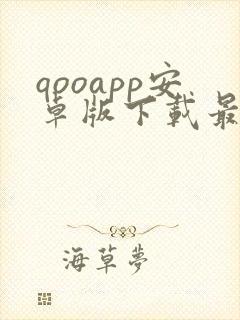 qpoapp安
卓版下載最
海草夢